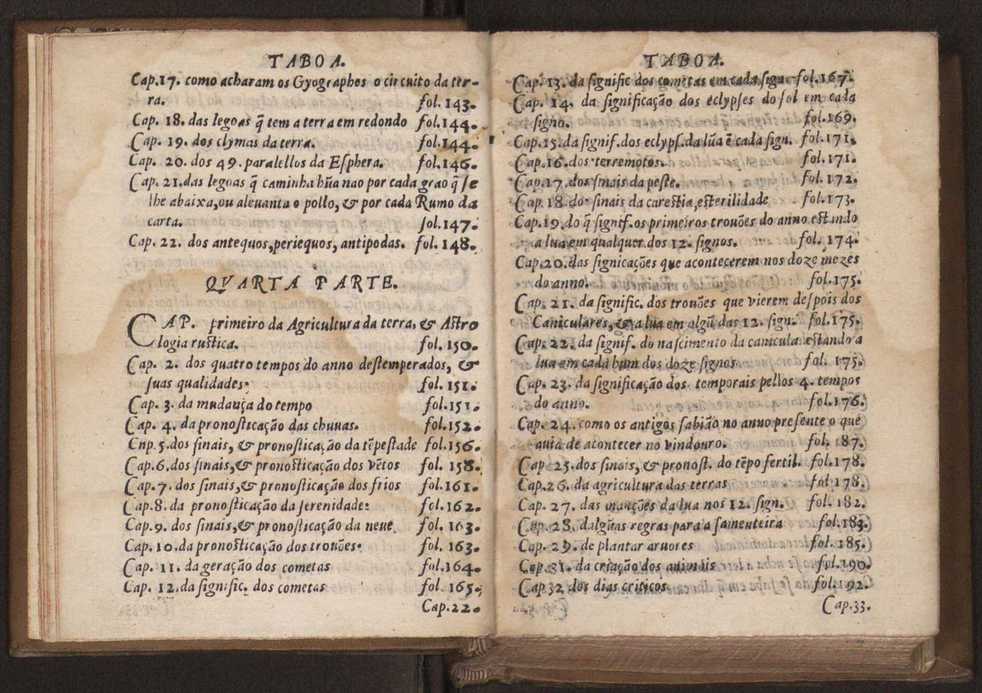 TABOA.
Cap.17. como acharam os Gyographos o circuito da ter-
ra. fol. 143.
Cap. 18. das legoas q̃ tem a terra em redondo fol.144.
Cap. 19. dos clymas da terra. fol.144.
Cap. 20. dos 49. paralellos da Esphera. fol.146.
Cap. 21.das legoas q̃ caminha hũa nao por cada grao q̃ se
lhe abaixa,ou aleuanta o pollo, & por cada Rumo da
carta. fol.147.
Cap. 22. dos antequos,periequos, antipodas. fol.148.
QVARTA PARTE.
CAP. primeiro da Agricultura da terra, & Astro
logia rustica. fol.150.
Cap. 2. dos quatro tempos do anno destemperados, &
suas qualidades. fol.151.
Cap. 3. da mudança do tempo fol.151.
Cap. 4. da pronosticação das chuuas. fol.152.
Cnp.5.dos sinais, & pronosticação da tẽpestade fol.156.
Cap.6.dos sinais,& pronosticação dos vẽtos fol. 158.
Cap.7. dos sinais,& pronosticação dos frios fol.161.
Cap.8. da pronosticação da serenidade: fol.162.
Cap.9. dos sinais,& pronosticação da neue fol. 163.
Cap.10.da pronosticação dos trouões. fol. 163.
Cap. 11. da geração dos cometas fol.164.
Cap. 12.da signific. dos cometas fol. 165.
Cap.22.
TABOA.
Cap. 13. da signific dos cometas em cada sign. fol.167.
Cap. 14. da significação dos eclypses do sol em cada
signo. fol.169.
Cap.15.da signif.dos eclyps.da lũa ẽ cada sign. fol.171.
Cap.16.dos terremotos. fol.171.
Cap.17.dos sinais da peste. fol. 172.
Cap.18.dos sinais da carestia,esterilidade fol.173.
Cap.19.do q̃ signif.os primeiros trouões do anno estando
a lua em qualquer dos 12. signos. fol. 174.
Cap.20.das signicações que acontecerem nos doze mezes
do anno. fol.175.
Cap. 21. da signific. dos trouões que vierem despois dos
Caniculares, & a lua em algũ das 12. sign. fol.175.
Cap. 22. da signif. do nascimento da canicula estando a
lua em cada hum dos doze signos fol. 175.
Cap. 23. da significação dos temporais pellos 4. tempos
do anno. fol.176.
Cap. 24. como os antigos sabião no anno presente o que
auia de acontecer no vindouro. fol. 187.
Cap 25.dos sinais, & pronost. do tẽpo fertil. fol.178.
Cap.26. da agricultura das terras fol 178.
Cap. 27. das manções da lua nos 12. sign. fol. 182.
Cap. 28. dalgũas regras para a sementeira fol.184.
Cap. 29. de plantar aruores fol.185.
Cap. 31. da criação dos animais fol.190.
Cap.32 dos dias criticos fol.192.
Cap.33.